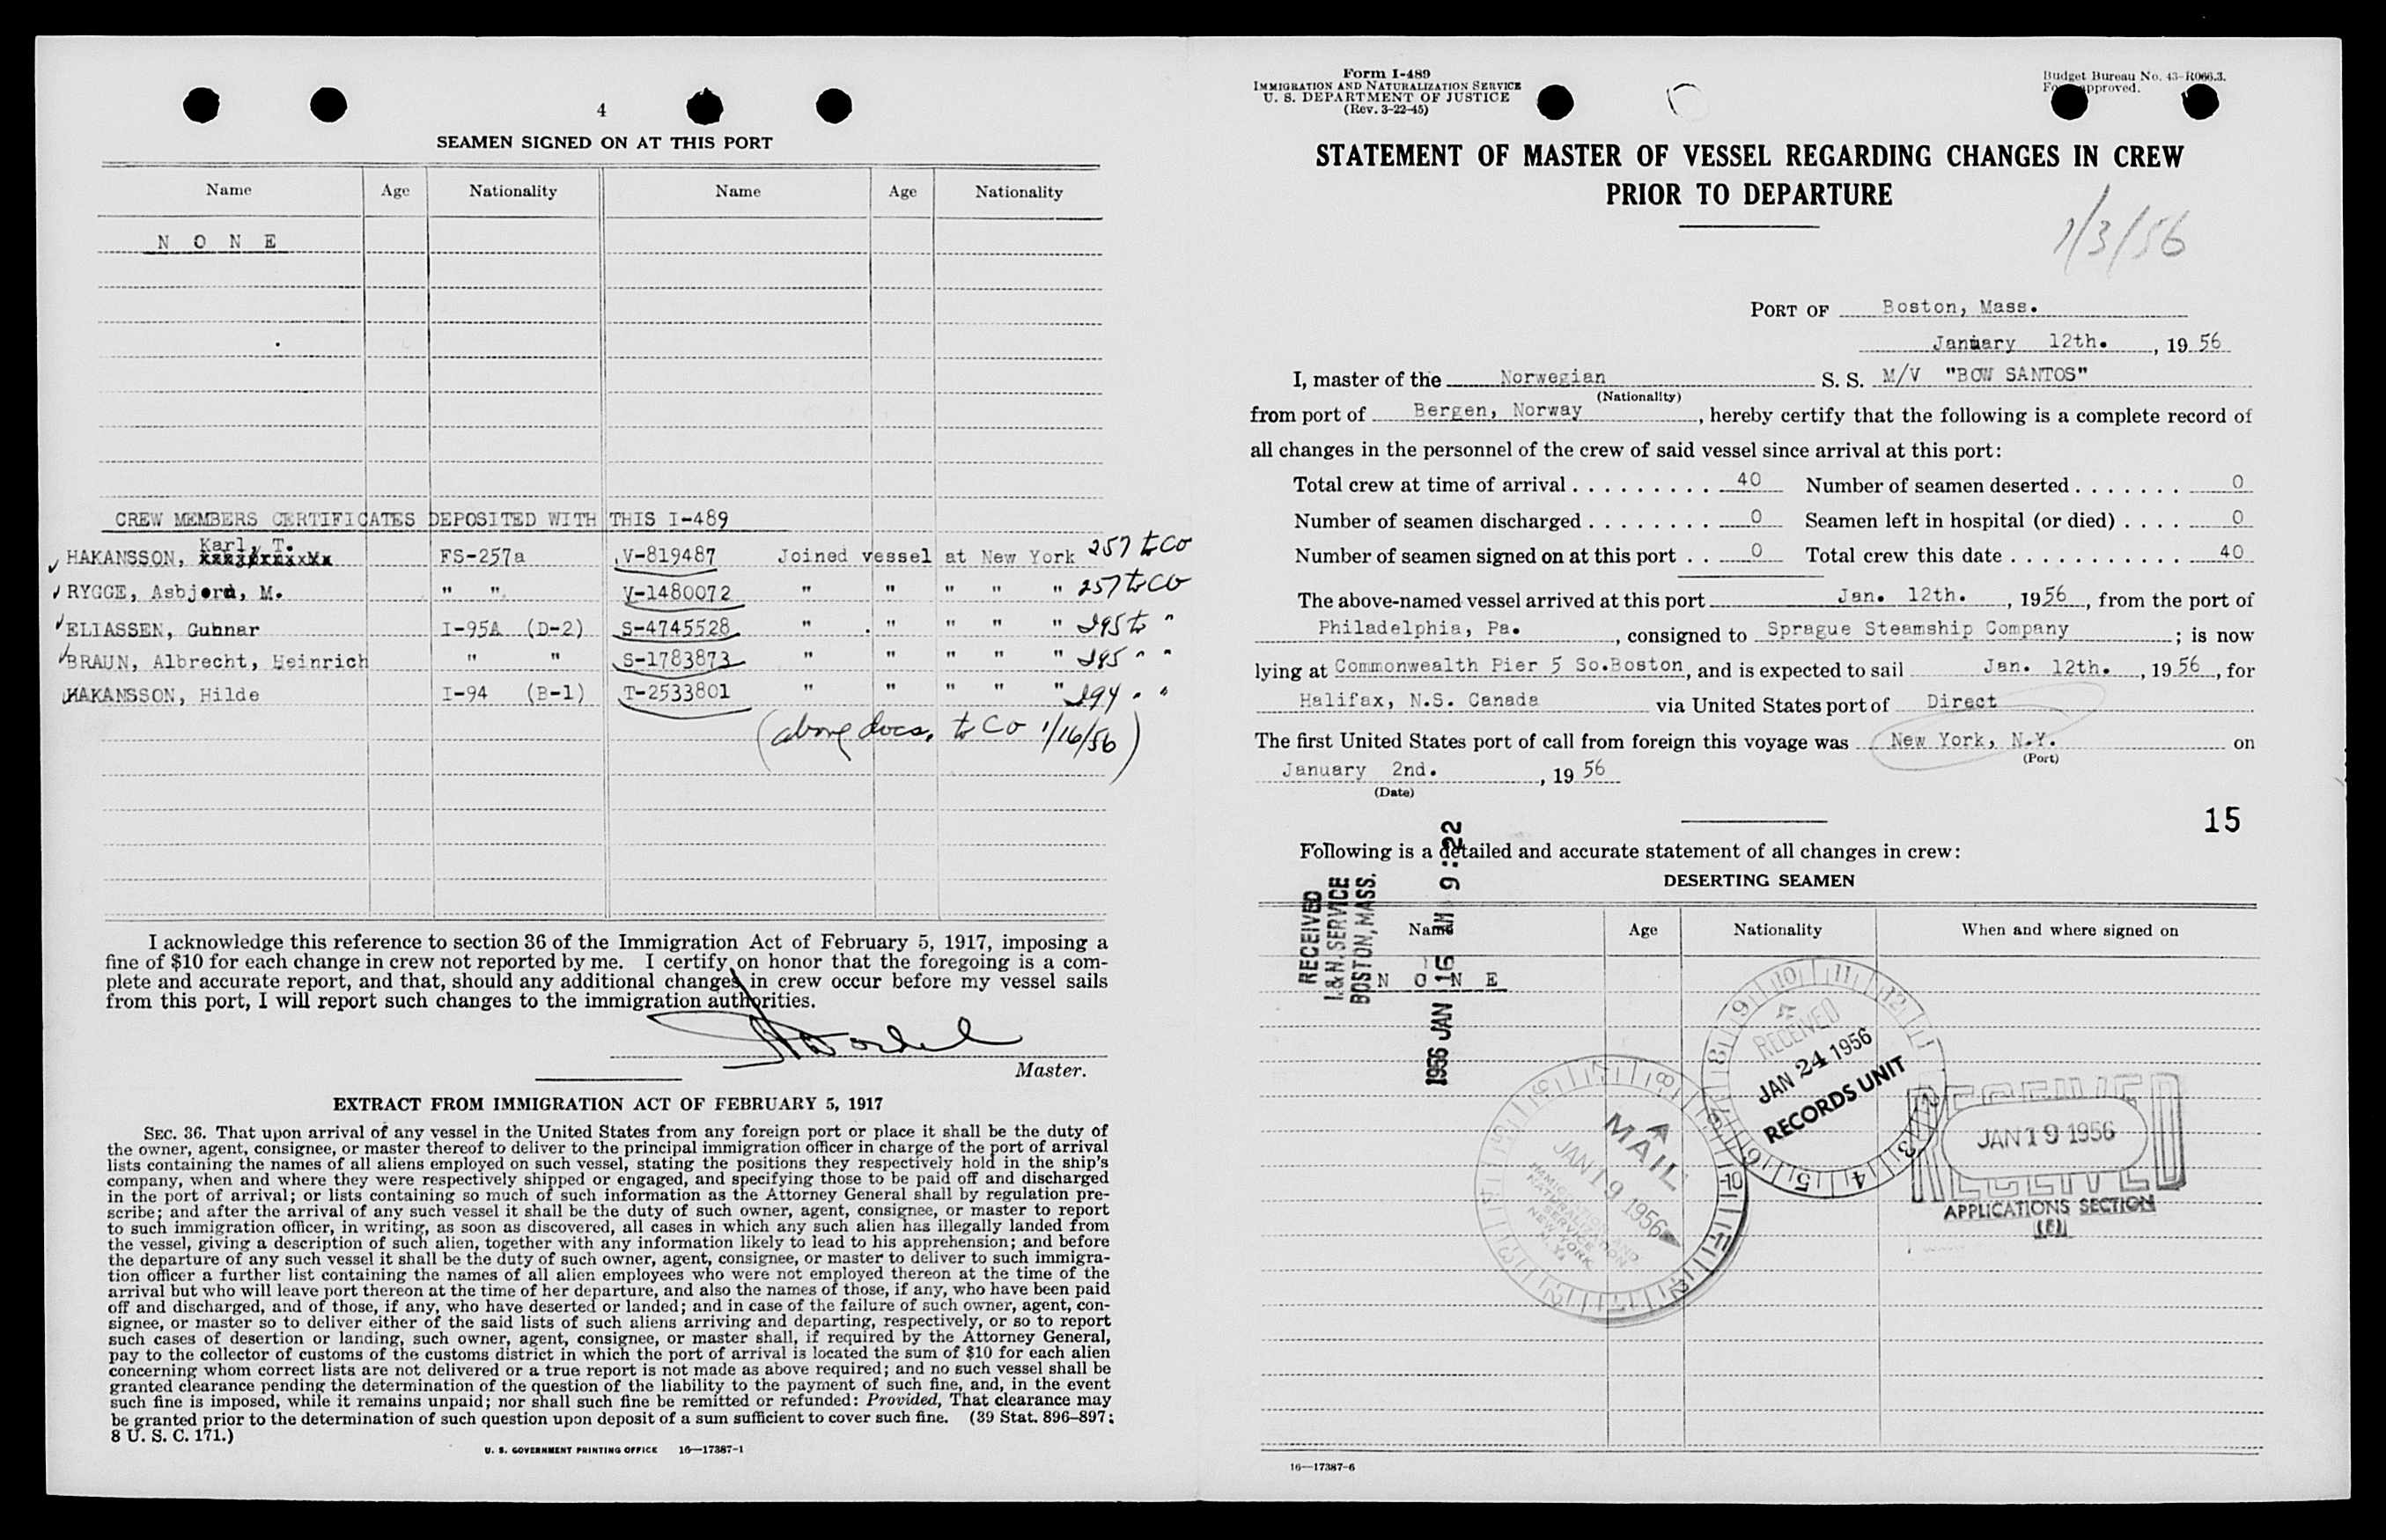 4
SEAMEN SIGNED ON AT THIS PORT
Name Age Nationality Name Age Nationality
N O N E
CREW MEMBERS CERTIFICATES DEPOSITED WITH THIS I-489
Karl, T.
HAKANSSON, FS-257a V-819487 Joined vessel at New York 257 to CO
RYGGE, Asbjorn, M. " " V-1480072 " " " " " 257 to CO
ELIASSEN, Guhnar I-95A (D-2) S-4745528 " " " " " 295 to "
BRAUN, Albrecht, Heinrich " " S-1783873 " " " " " 295 " "
HAKANSSON, Hilde I-94 (B-1) T-2533801 " " " " " 294 " "
(above docs. to CO 1/16/56)
I acknowledge this reference to section 36 of the Immigration Act of February 5, 1917, imposing a
fine of $10 for each change in crew not reported by me. I certify on honor that the foregoing is a com-
plete and accurate report, and that, should any additional changes in crew occur before my vessel sails
from this port, I will report such changes to the immigration authorities.
Master.
EXTRACT FROM IMMIGRATION ACT OF FEBRUARY 5, 1917
SEC. 36. That upon arrival of any vessel in the United States from any foreign port or place it shall be the duty of
the owner, agent, consignee, or master thereof to deliver to the principal immigration officer in charge of the port of arrival
lists containing the names of all aliens employed on such vessel, stating the positions they respectively hold in the ship's
company, when and where they were respectively shipped or engaged, and specifying those to be paid off and discharged
in the port of arrival; or lists containing so much of such information as the Attorney General shall by regulation pre-
scribe; and after the arrival of any such vessel it shall be the duty of such owner, agent, consignee, or master to report
to such immigration officer, in writing, as soon as discovered, all cases in which any such alien has illegally landed from
the vessel, giving a description of such alien, together with any information likely to lead to his apprehension; and before
the departure of any such vessel it shall be the duty of such owner, agent, consignee, or master to deliver to such immigra-
tion officer a further list containing the names of all alien employees who were not employed thereon at the time of the
arrival but who will leave port thereon at the time of her departure, and also the names of those, if any, who have been paid
off and discharged, and of those, if any, who have deserted or landed; and in case of the failure of such owner, agent, con-
signee, or master so to deliver either of the said lists of such aliens arriving and departing, respectively, or so to report
such cases of desertion or landing, such owner, agent, consignee, or master shall, if required by the Attorney General,
pay to the collector of customs of the customs district in which the port of arrival is located the sum of $10 for each alien
concerning whom correct lists are not delivered or a true report is not made as above required; and no such vessel shall be
granted clearance pending the determination of the question of the liability to the payment of such fine, and, in the event
such fine is imposed, while it remains unpaid; nor shall such fine be remitted or refunded: Provided, That clearance may
be granted prior to the determination of such question upon deposit of a sum sufficient to cover such fine. (39 Stat. 896–897;
8 U. S. C. 171.)
U. S. GOVERNMENT PRINTING OFFICE 16—17387-1
Form I-489
IMMIGRATION AND NATURALIZATION SERVICE
U. S. DEPARTMENT OF JUSTICE
(Rev. 3-22-45)
Budget Bureau No. 43-R066.3.
approved.
STATEMENT OF MASTER OF VESSEL REGARDING CHANGES IN CREW
PRIOR TO DEPARTURE
1/3/56
PORT OF Boston, Mass.
January 12th. , 19 56
I, master of the Norwegian S. S. M/V "BOW SANTOS"
(Nationality)
from port of Bergen, Norway , hereby certify that the following is a complete record of
all changes in the personnel of the crew of said vessel since arrival at this port:
Total crew at time of arrival . . . . . . . . . . 40 Number of seamen deserted . . . . . . . 0
Number of seamen discharged . . . . . . . . 0 Seamen left in hospital (or died) . . . . 0
Number of seamen signed on at this port . . 0 Total crew this date . . . . . . . . . . . . 40
The above-named vessel arrived at this port Jan. 12th. , 1956 , from the port of
Philadelphia, Pa. , consigned to Sprague Steamship Company ; is now
lying at Commonwealth Pier 5 So.Boston , and is expected to sail Jan. 12th. , 19 56 , for
Halifax, N.S. Canada via United States port of Direct
The first United States port of call from foreign this voyage was New York, N.Y. on
(Port)
January 2nd. , 19 56
(Date)
15
Following is a detailed and accurate statement of all changes in crew:
DESERTING SEAMEN
Name Age Nationality When and where signed on
N O N E
RECEIVED
I.& N. SERVICE
BOSTON, MASS.
1956 JAN 16 AM 9:22
RECEIVED
JAN 24 1956
RECORDS UNIT
MAIL
JAN 19 1956
IMMIGRATION AND
NATURALIZATION
SERVICE
NEW YORK
N.Y.
RECEIVED
JAN 19 1956
APPLICATIONS SECTION
16—17387-6